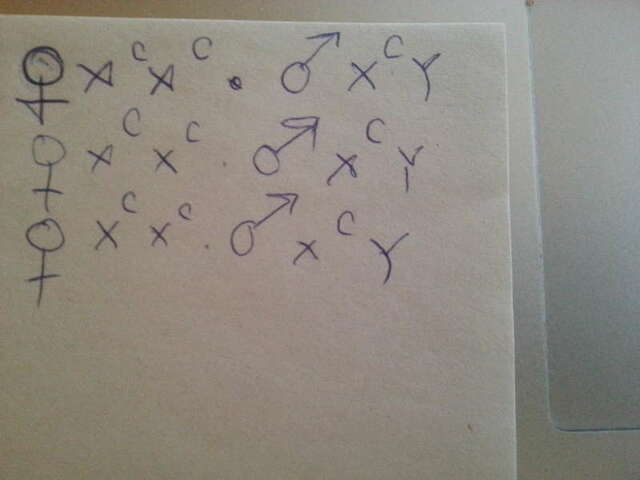 ♀ X^C X^C . ♂ X^C Y
♀ X^C X^C . ♂ X^C Y
♀ X^C X^C . ♂ X^C Y